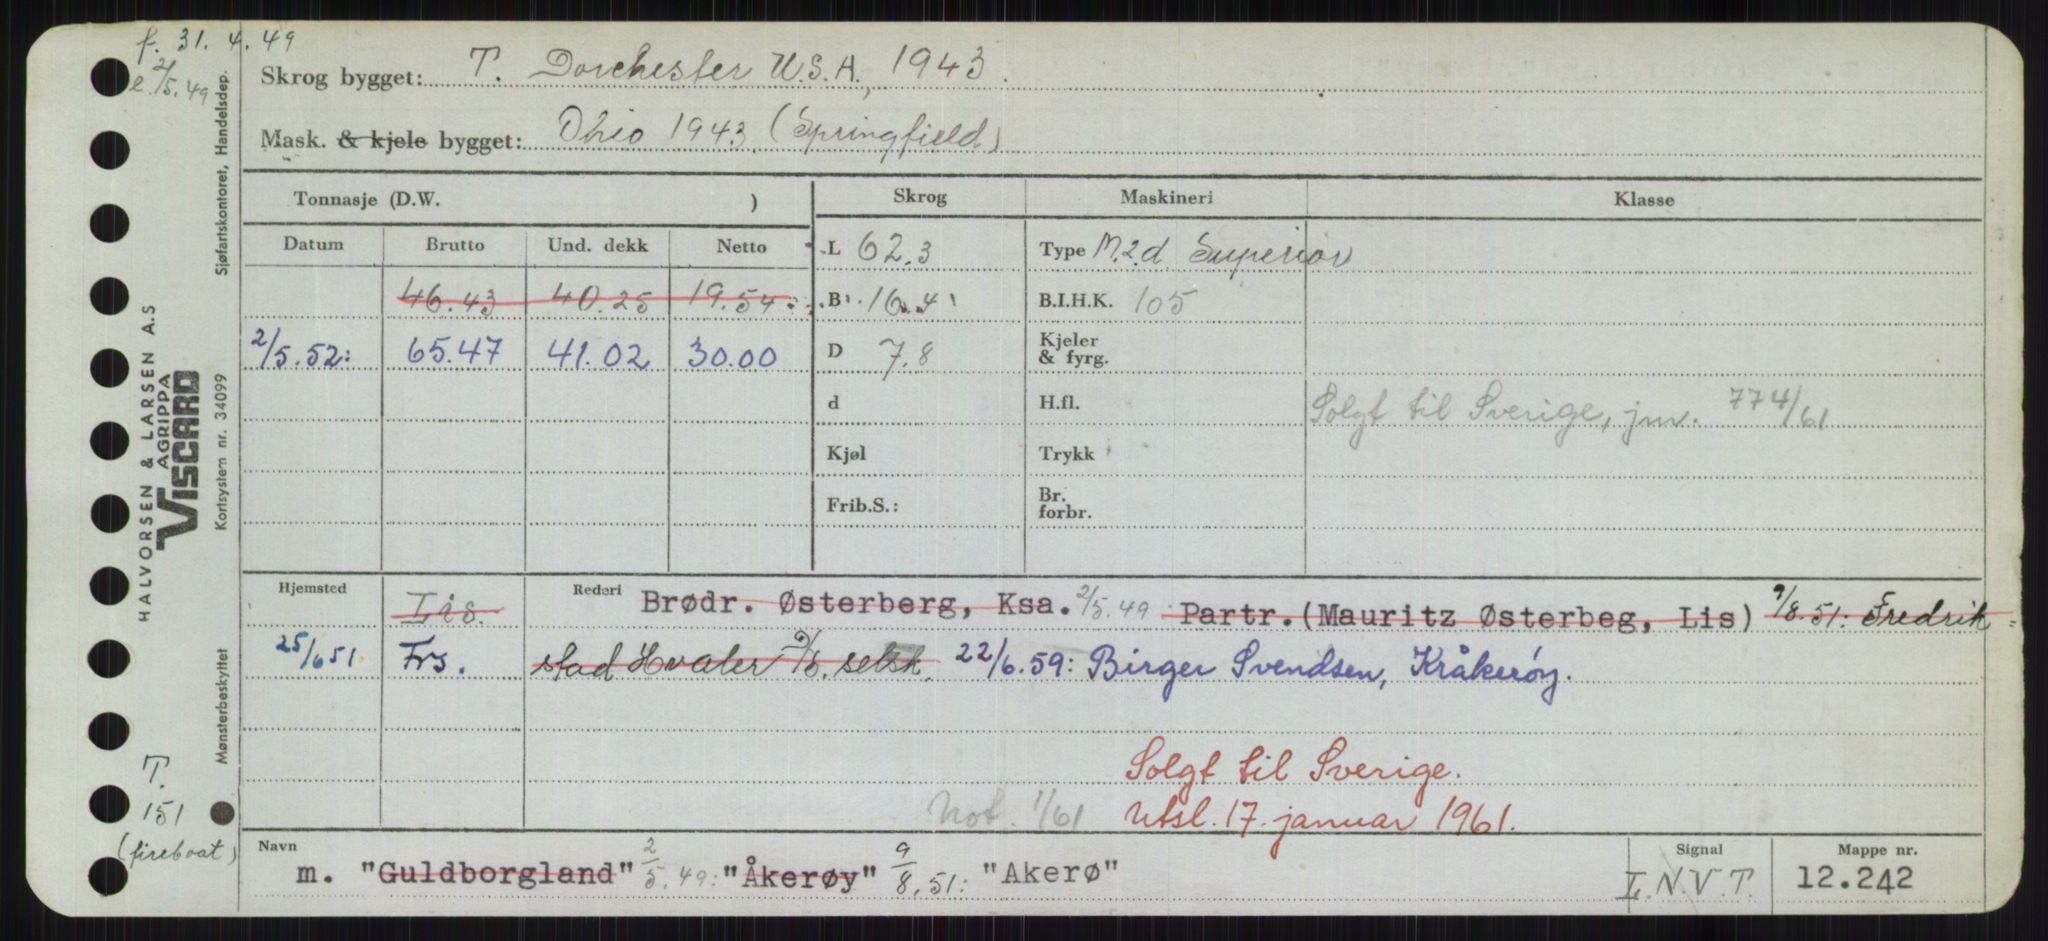 f. 31. 4. 49
e. 2/5. 49
Skrog bygget: T. Dorchester U.S.A, 1943.
Mask. & kjele bygget: Ohio 1943 (Springfield)
Tonnasje (D.W. )
Skrog Maskineri Klasse
Datum Brutto Und. dekk Netto
L 62.3 Type M.2.d Superior
46.43 40.25 19.54
B 16.4 B.I.H.K. 105
2/5.52: 65.47 41.02 30.00
D 7.8 Kjeler & fyrg.
d H.fl.
Solgt til Sverige, jnr. 774/61
Kjøl Trykk
Frib.S.: Br. forbr.
Hjemsted Lis. Rederi Brødr. Østerberg, Ksa. 2/5.49 Partr. (Mauritz Østerbeg, Lis) 9/8.51: Fredrik=
25/6 51 Frs. stad Hvaler D/S. selsk. 22/6.59: Birger Svendsen, Kråkerøy.
Solgt til Sverige.
Not. 1/61 Utsl. 17. januar 1961.
Navn m. "Guldborgland" 2/5.49: "Åkerøy" 9/8.51: "Akerø"
Signal L.N.V.T.
Mappe nr. 12.242
Sjøfartskontoret, Handelsdep.
HALVORSEN & LARSEN A.S
AGRIPPA
VISCARD
Kortsystem nr. 34099
Mønsterbeskyttet
T.
151
(fireboat)